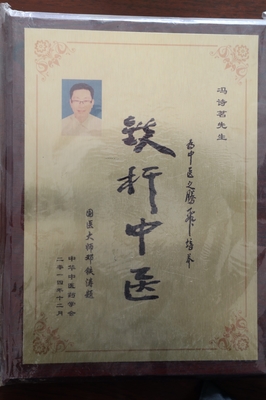 冯诗茗先生
为中医之腾飞培本
铁杆中医
国医大师邓铁涛题
中华中医药学会
二零一四年十二月